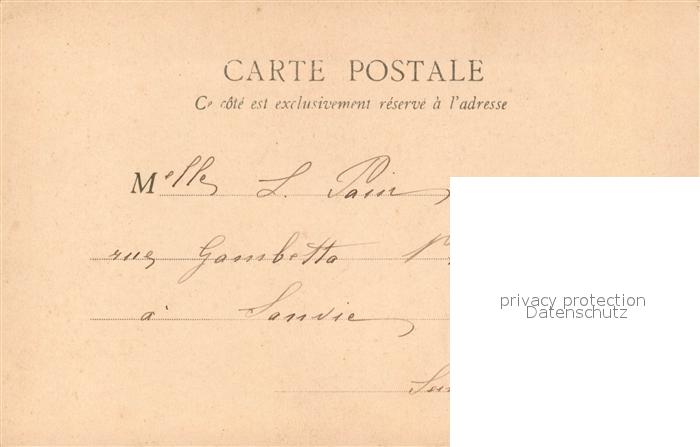 CARTE POSTALE
Ce côté est exclusivement réservé à l'adresse
Melle L. Pain
rue Gambetta
privacy protection
Datenschutz
à Sanvic